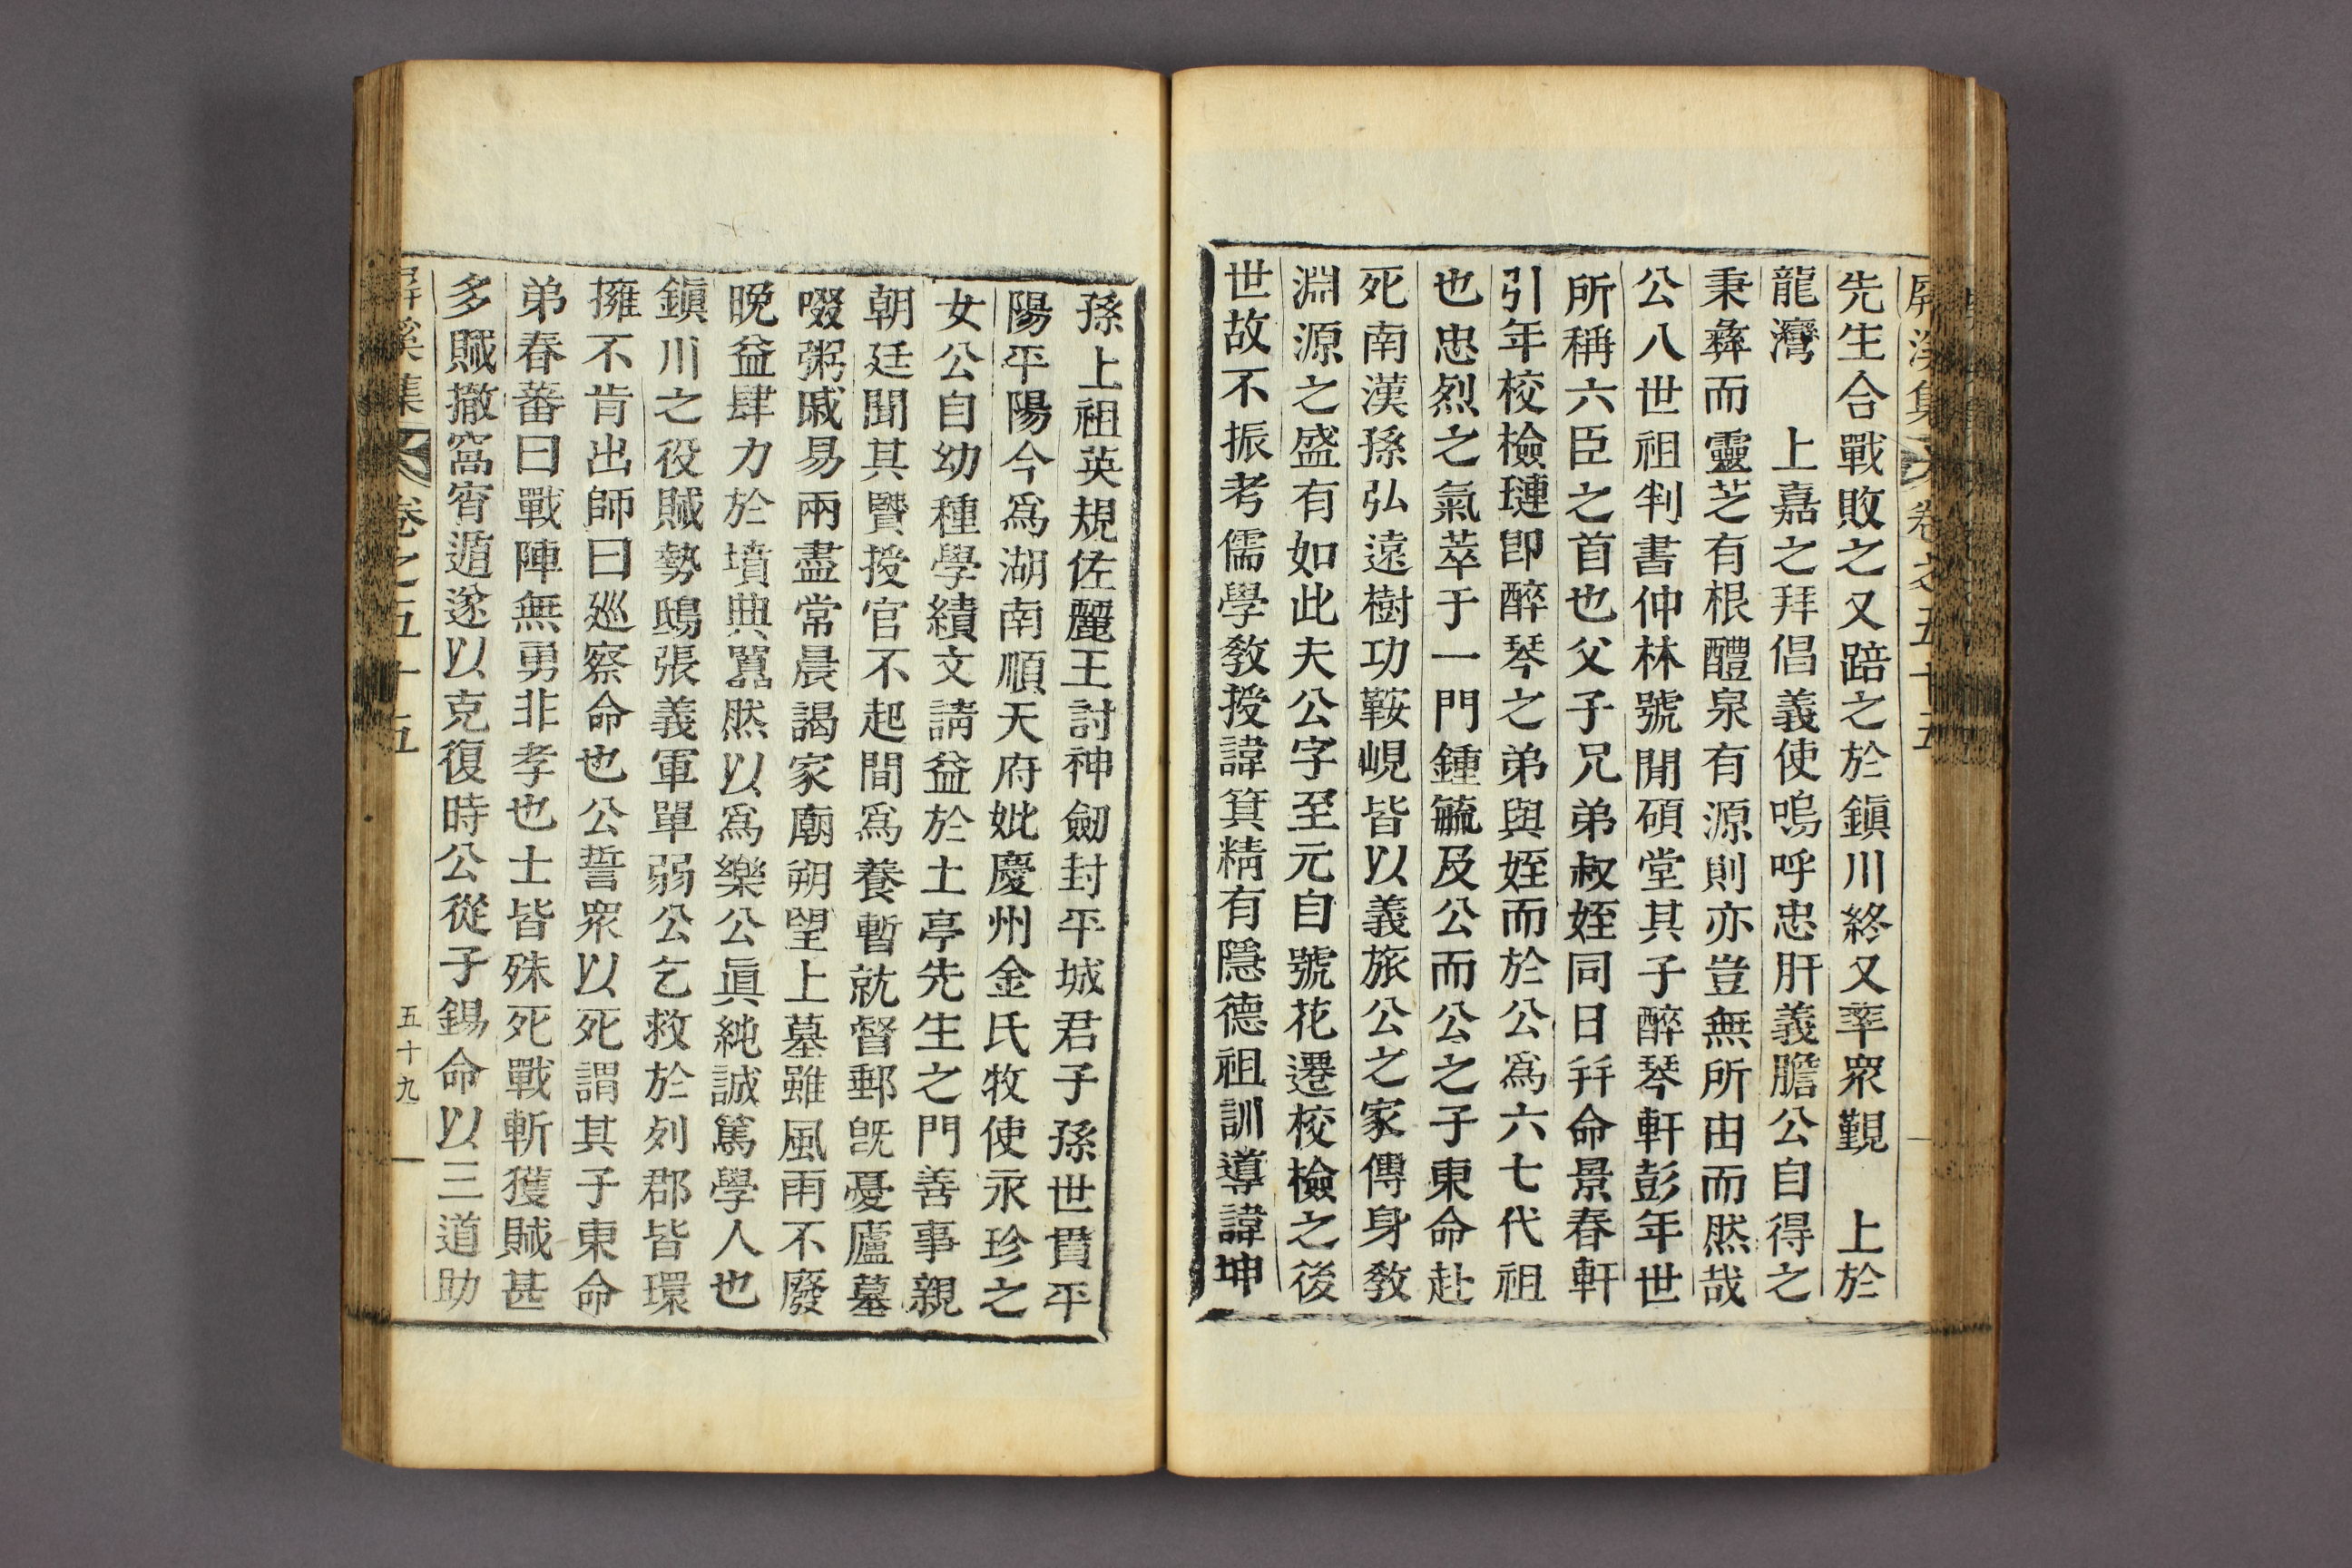 屛溪集 卷之五十五
先生合戰敗之又踣之於鎭川終又率衆覲 上於
龍灣 上嘉之拜倡義使嗚呼忠肝義膽公自得之
秉彝而靈芝有根醴泉有源則亦豈無所由而然哉
公八世祖判書仲林號閒碩堂其子醉琴軒彭年世
所稱六臣之首也父子兄弟叔姪同日幷命景春軒
引年校檢璉卽醉琴之弟與姪而於公爲六七代祖
也忠烈之氣萃于一門鍾毓及公而公之子東命赴
死南漢孫弘遠樹功鞍峴皆以義旅公之家傳身敎
淵源之盛有如此夫公字至元自號花遷校檢之後
世故不振考儒學敎授諱箕精有隱德祖訓導諱坤
孫上祖英規佐麗王討神劒封平城君子孫世貫平
陽平陽今爲湖南順天府妣慶州金氏牧使永珍之
女公自幼種學績文請益於土亭先生之門善事親
朝廷聞其賢授官不起間爲養暫就督郵旣憂廬墓
啜粥戚易兩盡常晨謁家廟朔望上墓雖風雨不廢
晩益肆力於墳典囂然以爲樂公眞純誠篤學人也
鎭川之役賊勢鴟張義軍單弱公乞救於列郡皆環
擁不肯出師曰廵察命也公誓衆以死謂其子東命
弟春蕃曰戰陣無勇非孝也士皆殊死戰斬獲賊甚
多賊撤窩宵遁遂以克復時公從子錫命以三道助
屛溪集 卷之五十五 五十九